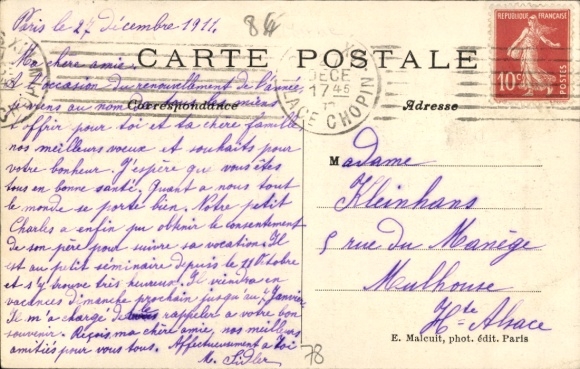 Paris le 27 décembre 1911.
84
CARTE POSTALE
REPUBLIQUE FRANÇAISE
10c
POSTES
DECE
17 45
PLACE CHOPIN
Correspondance
Adresse
Ma chère amie.
A l'occasion du renouvellement de l'année
je viens au nom
offrir pour toi et ta chère famille
nos meilleurs voeux et souhaits pour
votre bonheur. J'espère que vous êtes
tous en bonne santé. Quant a nous tout
le monde se porte bien. Notre petit
Charles a enfin pu obtenir le consentement
de son père pour suivre sa vocation. Il
est au petit séminaire depuis le 11 Octobre
et s'y trouve très heureux. Il viendra en
vacances dimanche prochain jusqu'au Janvier
Il m'a chargé de rappeler a votre bon
souvenir. Reçois, ma chère amie, nos meilleurs
amitiés pour vous tous. Affectueusement a toi
M. Sidler
78
Madame
Kleinhans
5 rue du Manège
Mulhouse
Hte Alsace
E. Malcuit, phot. édit. Paris